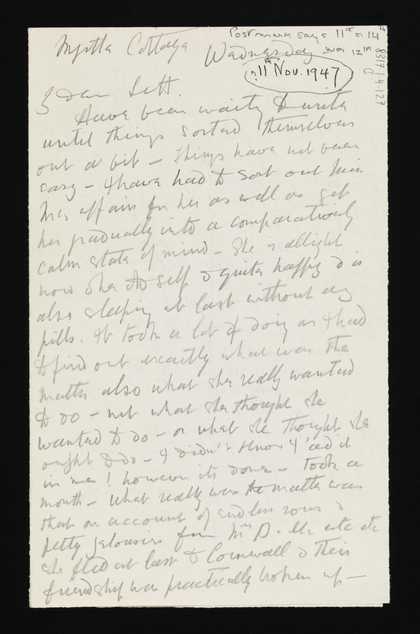 Postmark says 11th or 14th
Myrtle Cottage Wednesday was 12th
11th Nov. 1947
8314.4.127
Dear Sett.
Have been waiting to write
until things sorted themselves
out a bit – things have not been
easy – I have had to sort out
her affairs for her as well as get
her gradually into a comparatively
calm state of mind – She is allright
now & her self & quite happy & is
also sleeping at last without any
pills. It took a lot of doing as I had
to find out exactly what was the
matter also what she really wanted
to do – not what she thought she
wanted to do – or what she thought she
ought to do – I didn't know I 'ad it
in me! however its done – Took a
month – What really was the matter was
that on account of endless rows &
petty jealousies from Mrs D. etc etc
she fled at last to Cornwall & their
friendship was practically broken up –